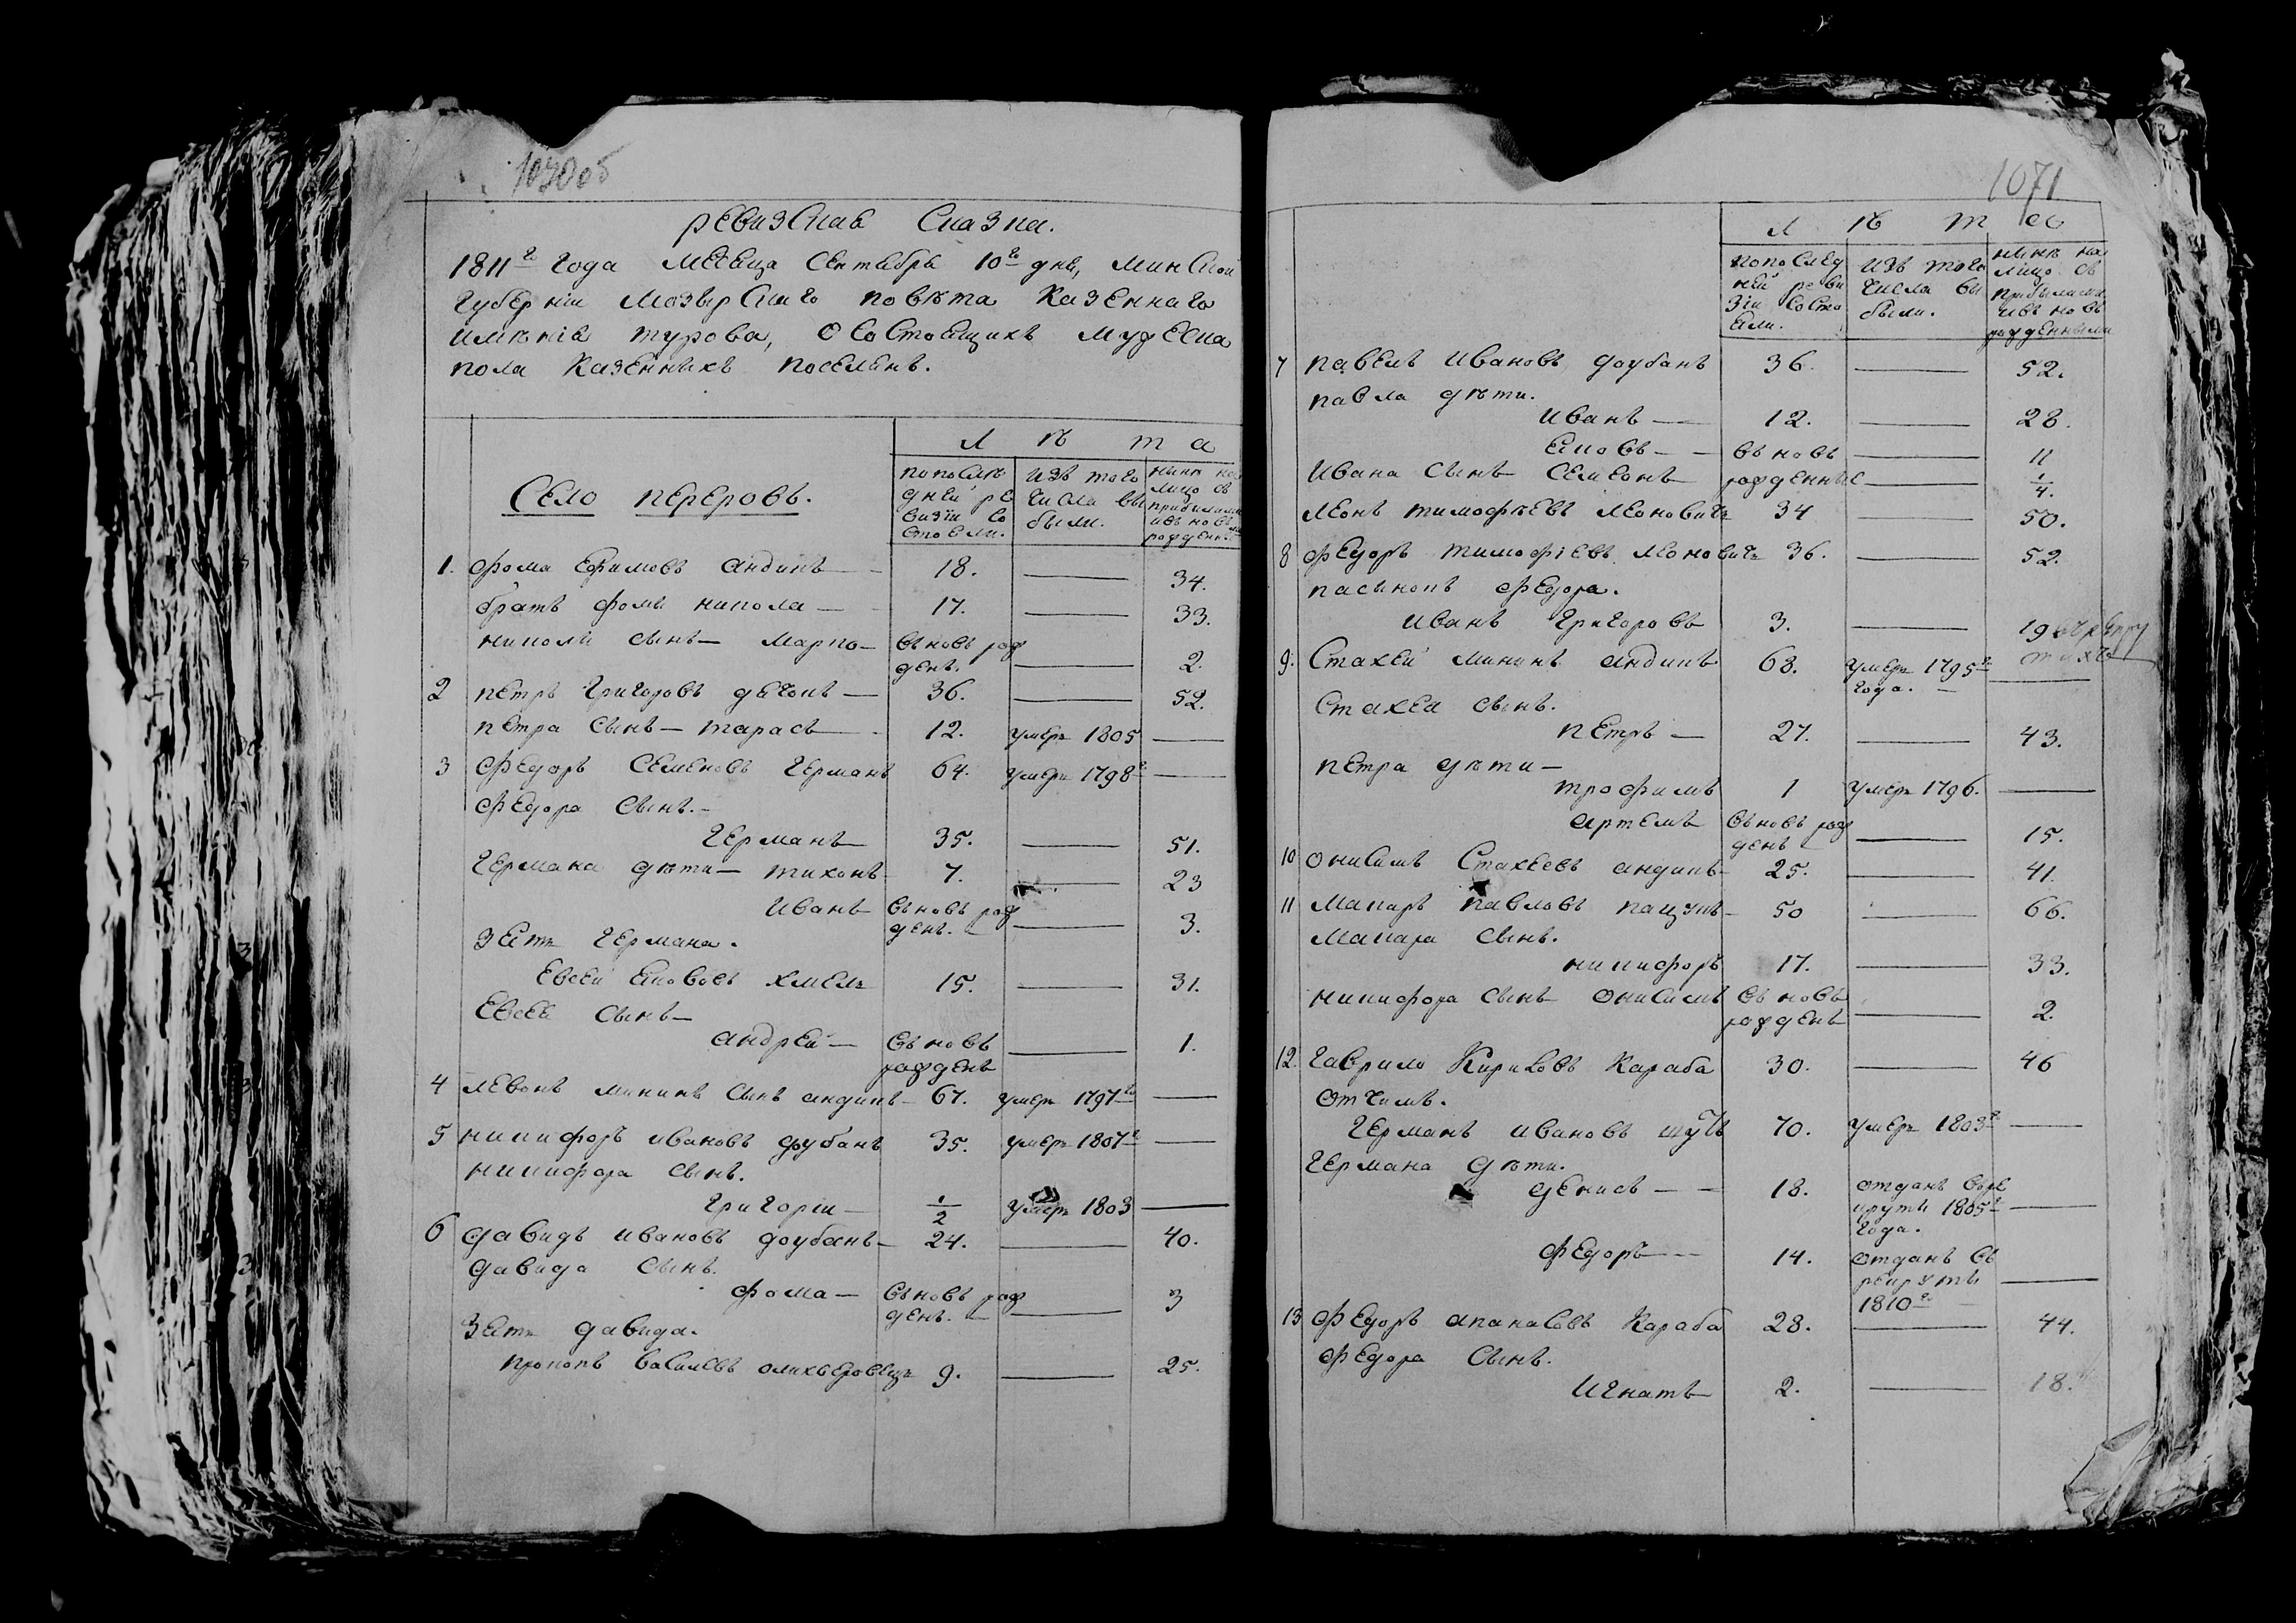 1070об
ревизская Сказка.
1811г года месеца Сентября 10г дня, минской
губернии мозырскаго повѣта казеннаго
имѣнія турова, о состоящихъ мужеска
пола казенныхъ поселянъ.
Село переровъ.
Л ѣ та
по послѣдней ревизіи состояли.
изъ того числа выбыли.
нынѣ на лицо съ прибылыми и въ новь рожденными
1. фома Ефимовъ андикъ — 18. — 34.
братъ фомы никола — 17. — 33.
николи сынъ — марко — въновь рожденъ. — 2.
2 петръ григоровъ дячокъ — 36. — 52.
петра сынъ — тарасъ — 12. умеръ 1805 —
3 Федоръ Семеновъ германъ 64. умеръ 1798г —
Федора сынъ. —
германъ 35. — 51.
германа дѣти — тихонъ 7. — 23
иванъ въновь рожденъ. — 3.
зять германа.
Евсей Якововъ хмель 15. — 31.
Евсея сынъ —
андрей — въновь рожденъ — 1.
4 левонъ мининъ сынъ андикъ — 67. умеръ 1797го —
5 никифоръ ивановъ доубанъ 35. умеръ 1807г —
никифора сынъ.
григорiи — 1/2 умеръ 1803 —
6 давидъ ивановъ доубанъ — 24. — 40.
давида сынъ.
фома — въновь рожденъ. — 3
зять давида.
прокопъ василевъ 9. — 25.
1071
Л ѣ та
по последней ревизіи состояли.
изъ того числа выбыли.
нынѣ на лицо съ прибылыми и въ новь рожденными
7 павелъ ивановъ доубанъ 36. — 52.
павла дѣти.
иванъ — 12. — 28.
Яковъ — — въ новь — 11
ивана сынъ семеонъ рожденные — 1/4.
леонъ тимофѣевъ леоновичъ 34 — 50.
8 федоръ тимофiевъ леоновичъ 36. — 52.
пасынокъ федора.
иванъ григоровъ 3. — 19
9. Стахей мининъ андикъ 68. умеръ 1795г года. — —
Стахея сынъ.
петръ — 27. — 43.
петра дѣти —
трофимъ 1 умеръ 1796. —
артемъ въновь рожденъ — 15.
10 онисимъ Стахеевъ андикъ — 25. — 41.
11 макаръ павловъ пацукъ — 50 — 66.
макара сынъ.
никифоръ 17. — 33.
никифора сынъ онисимъ въ новь рожденъ — 2.
12. гаврило Кириковъ Караба 30. — 46
отчимъ.
германъ ивановъ 70. умеръ 1803г —
германа дѣти.
денисъ — — 18. отданъ въ рекруты 1805г года. —
федоръ — 14. отданъ въ рекруты 1810г —
13 федоръ апанасовъ Караба 28. — 44.
федора сынъ.
игнатъ 2. — 18.